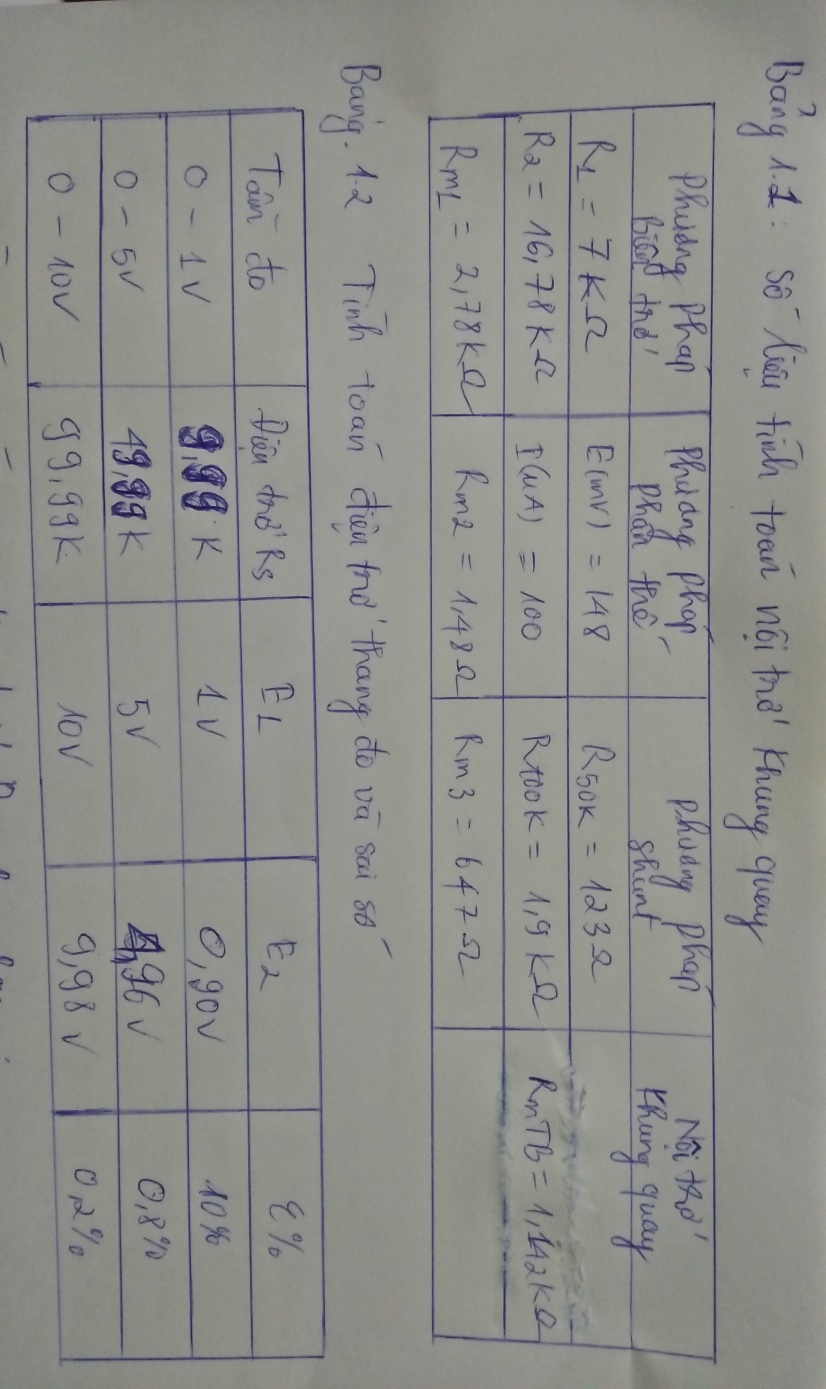 Bảng 1.1: Số liệu tính toán nội trở khung quay
Phương pháp biến trở Phương pháp phân thế Phương pháp shunt Nội trở khung quay
R1 = 7KΩ E(mV) = 148 R50K = 123Ω
R2 = 16,78KΩ I(μA) = 100 R100K = 1,9KΩ RmTB = 1,142KΩ
Rm1 = 2,78KΩ Rm2 = 1,48Ω Rm3 = 647Ω
Bảng. 1.2 Tính toán điện trở thang đo và sai số
Tầm đo Điện trở Rs E1 E2 ε%
0 - 1V 9,99 K 1V 0,90V 10%
0 - 5V 49,99K 5V 4,96V 0,8%
0 - 10V 99,99K 10V 9,98V 0,2%